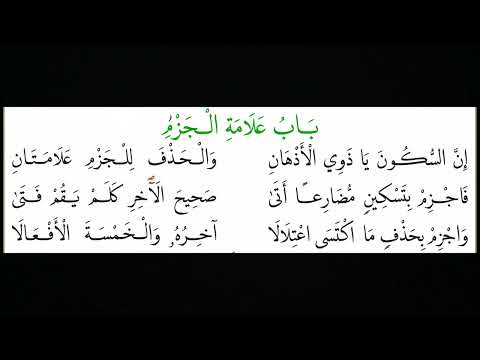 بَابُ عَلَامَةِ الْجَزْمِ
إِنَّ السُّكُونَ يَا ذَوِي الْأَذْهَانِ وَالْحَذْفَ لِلْجَزْمِ عَلَامَتَانِ
فَاجْزِمْ بِتَسْكِينٍ مُضَارِعًا أَتَى صَحِيحَ الْآخِرِ كَلَمْ يَقُمْ فَتَى
وَاجْزِمْ بِحَذْفٍ مَا اكْتَسَى اعْتِلَالَا آخِرُهُ وَالْخَمْسَةَ الْأَفْعَالَا